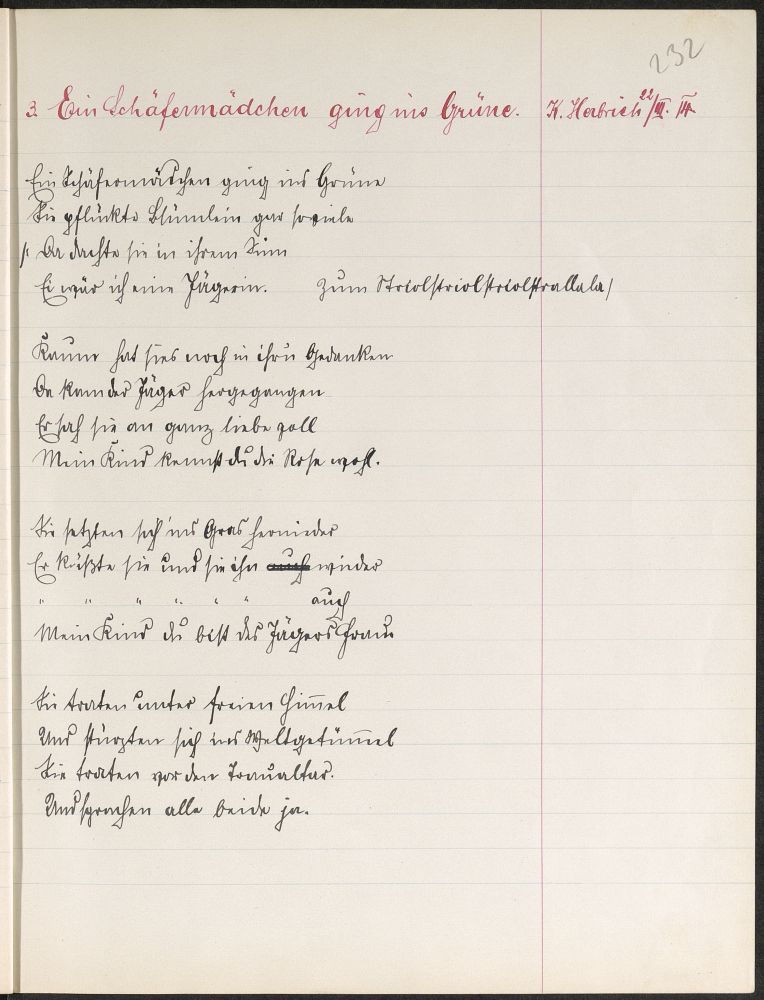 232
3. Ein Schäfermädchen ging ins Grüne. K. Herbrich 22/III.
Ein Schäfermädchen ging ins Grüne
Sie pflückte Blümlein gar soviele
/: Da dachte sie in ihrem Sinn
Ei wär ich eine Jägerin. Zum Striolstriolstriolstrallala/
Kaum hat sies noch in ihrn Gedanken
Da kam der Jäger hergegangen
Er sah sie an ganz liebe voll
Mein Kind kennst du die Rose wohl.
Sie setzten sich ins Gras hernieder
Er küßte sie und sie ihn auch wieder
" " " " " " auch
Mein Kind du bist des Jägers Frau
Sie traten unter freien Himmel
Und stürzten sich ins Weltgetümmel
Sie traten vor den Traualtar.
Und sprachen alle beide ja.